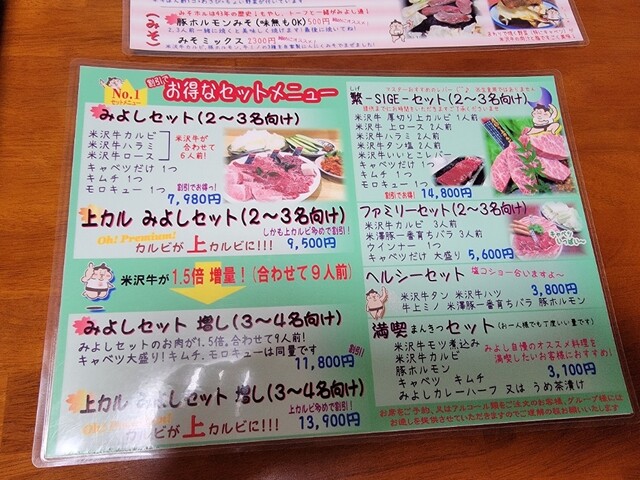 (みそ)
みそホルモンは41年の歴史!もやし、トーフと一緒がみよし流!
豚ホルモンみそ(味無もOK)500円
2、3人前一緒に焼くと美味しく焼けます!最後に焼いてね!
みそミックス 2300円
割引で
お得なセットメニュー
No.1
セットメニュー
みよしセット(2~3名向け)
米沢牛カルビ
米沢牛ハラミ
米沢牛ロース
米沢牛が
合わせて
6人前!
キャベツだけ 1つ
キムチ 1つ
モロキュー 1つ
割引でお得っ!
7,980円
上カル みよしセット(2~3名向け)
しかも上カルビ多めで割引!
Oh! Premium!
カルビが上カルビに!!!
9,500円
米沢牛が 1.5倍 増量!(合わせて9人前)
みよしセット 増し(3~4名向け)
みよしセットのお肉が1.5倍。合わせて9人前!
キャベツ大盛り!キムチ、モロキューは同量です
割引!
11,800円
上カル みよしセット 増し(3~4名向け)
上カルビ多めで割引!
Oh! Premium!
カルビが上カルビに!!!
13,900円
しげ
繁-SIGE-セット(2~3名向け)
米沢牛 厚切り上カルビ 1人前
米沢牛 上ロース 2人前
米沢牛 ハラミ 2人前
米沢牛 タン塩 2人前
米沢牛 いいとこレバー
キャベツだけ 1つ
キムチ 1つ
モロキュー 1つ
割引!
14,800円
ファミリーセット(2~3名向け)
米沢牛カルビ 3人前
米澤豚一番育ちバラ 3人前
ウインナー 1つ
キャベツだけ 大盛り
5,600円
キャベツ
いっぱい~
ヘルシーセット
塩コショー合いますよ~
3,800円
米沢牛タン 米沢牛ハツ
牛上ミノ 米澤豚一番育ちバラ 豚ホルモン
満喫 まんきつセット(お一人様でも丁度いい量です)
米沢牛モツ煮込み
米沢牛カルビ
豚ホルモン
キャベツ キムチ
みよしカレーハーフ 又は うめ茶漬け
みよし自慢のオススメ料理を
満喫したいお客様におすすめ!
3,100円
お席をご予約、又はアルコール類をご注文のお客様、グループ様には
お通しを提供させていただきますのでご理解の程お願いいたします